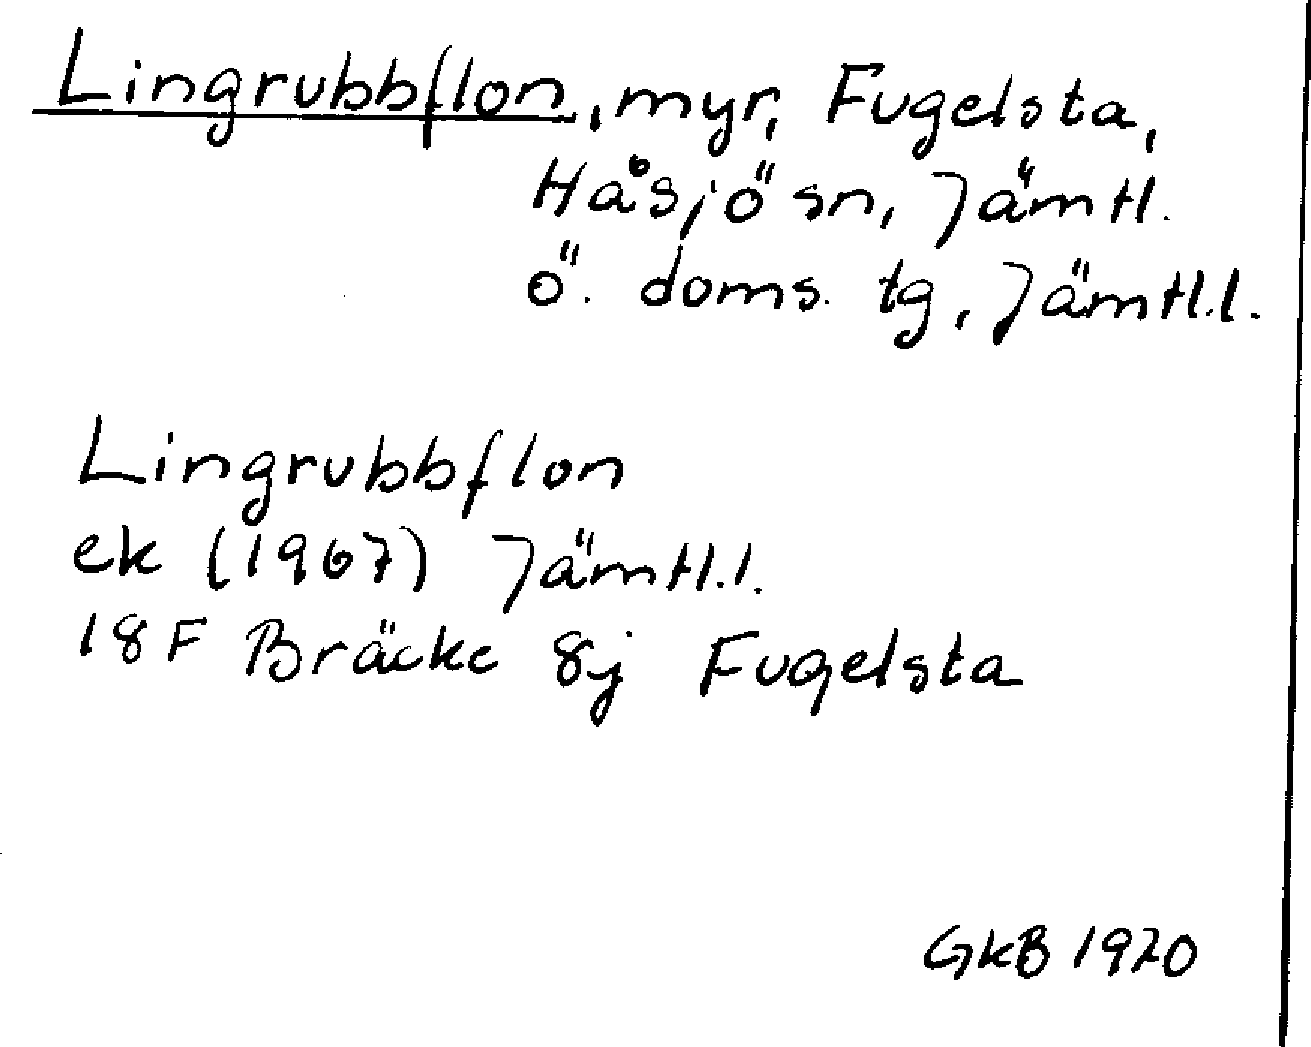 Lingrubbflon, myr, Fugelsta,
Håsjö sn, Jämtl.
ö. doms. tg, Jämtl.l.
Lingrubbflon
ek (1967) Jämtl.l.
18F Bräcke 8j Fugelsta
GkB 1970